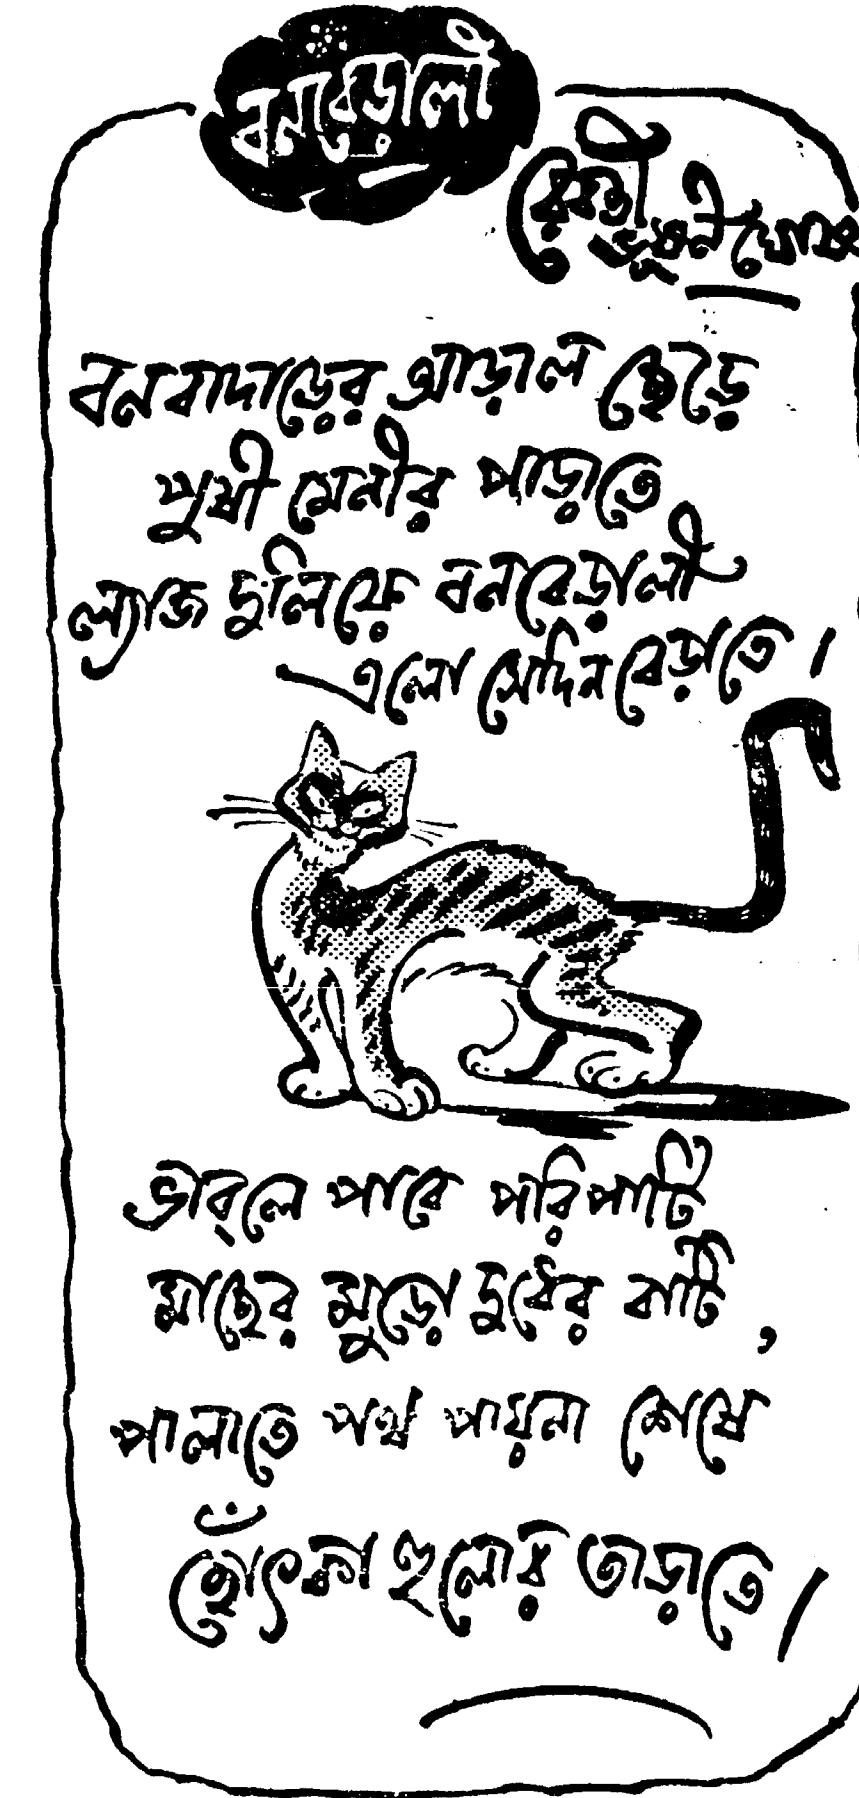 বনবেড়ালী
রেবতীভূষণ ঘোষ
বনবাদাড়ের আড়াল ছেড়ে
পুষী মেনীর পাড়াতে
ল্যাজ দুলিয়ে বনবেড়ালী
এলো সেদিন বেড়াতে।
ভাব্‌লে পাবে পরিপাটি
মাছের মুড়ো দুধের বাটি,
পালাতে পথ পায়না শেষে
হোঁৎকা হুলোর তাড়াতে।